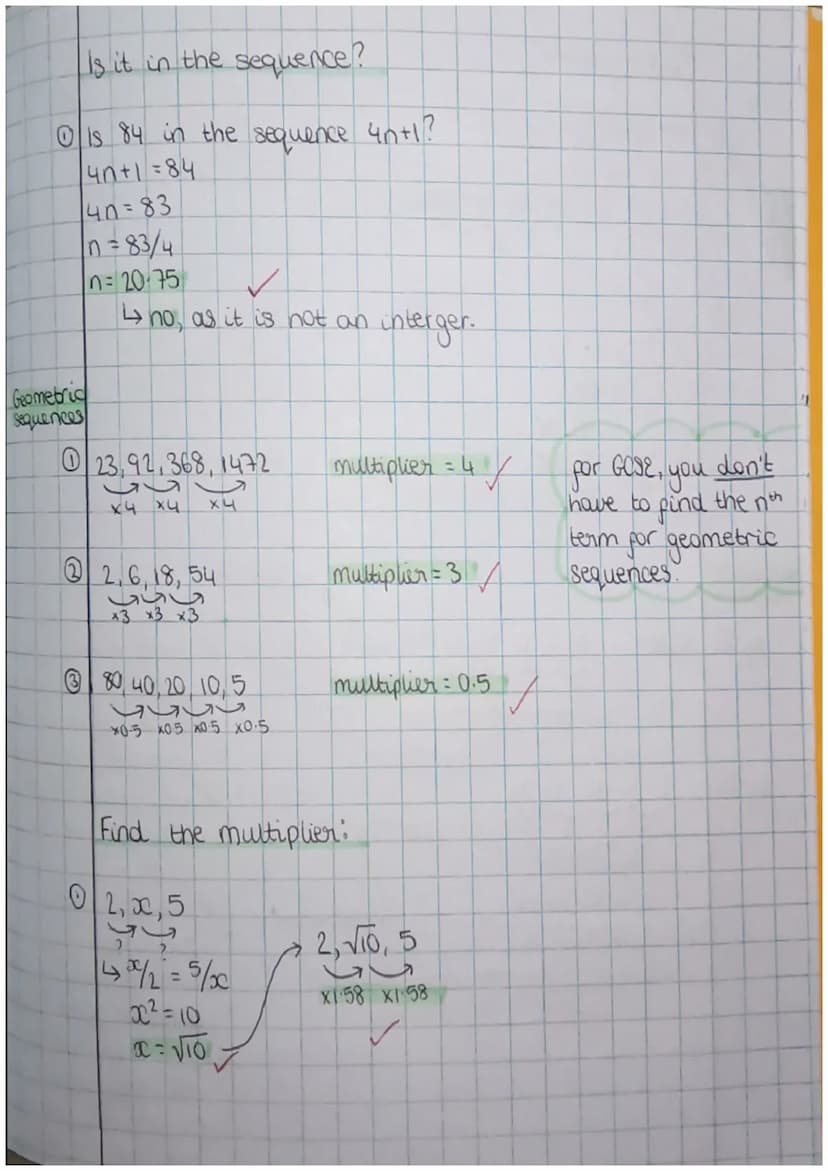 Is it in the sequence?
① Is 84 in the sequence 4n+1?
4n+1 = 84
4n = 83
n = 83/4
n = 20.75 ✓
↳ no, as it is not an interger.
Geometric
sequences
① 23, 92, 368, 1472
×4 ×4 ×4
multiplier = 4 ✓
② 2, 6, 18, 54
×3 ×3 ×3
multiplier = 3 ✓
③ 80, 40, 20, 10, 5
×0.5 ×0.5 ×0.5 ×0.5
multiplier = 0.5 ✓
for GCSE, you don't
have to find the nth
term for geometric
sequences.
Find the multiplier:
① 2, x, 5
? ?
↳ x/2 = 5/x
x² = 10
x = √10 ✓
2, √10, 5
×1.58 ×1.58
✓